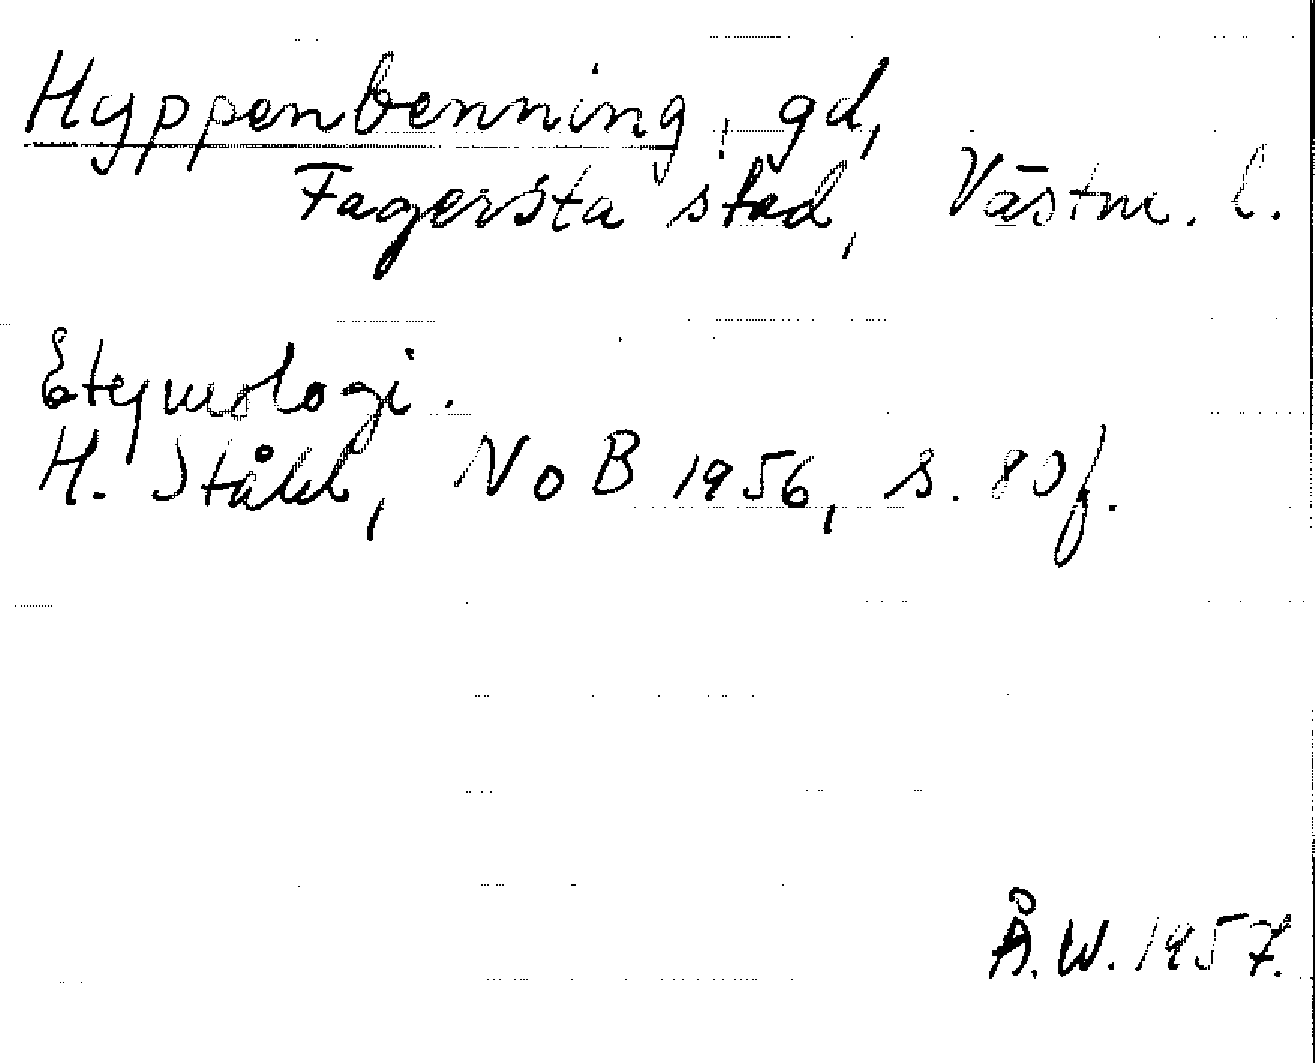 Hyppenbenning, gd,
Fagersta stad, Västm. l.
Etymologi.
H. Ståhl, NoB 1956, s. 80f.
Å.W. 1957.